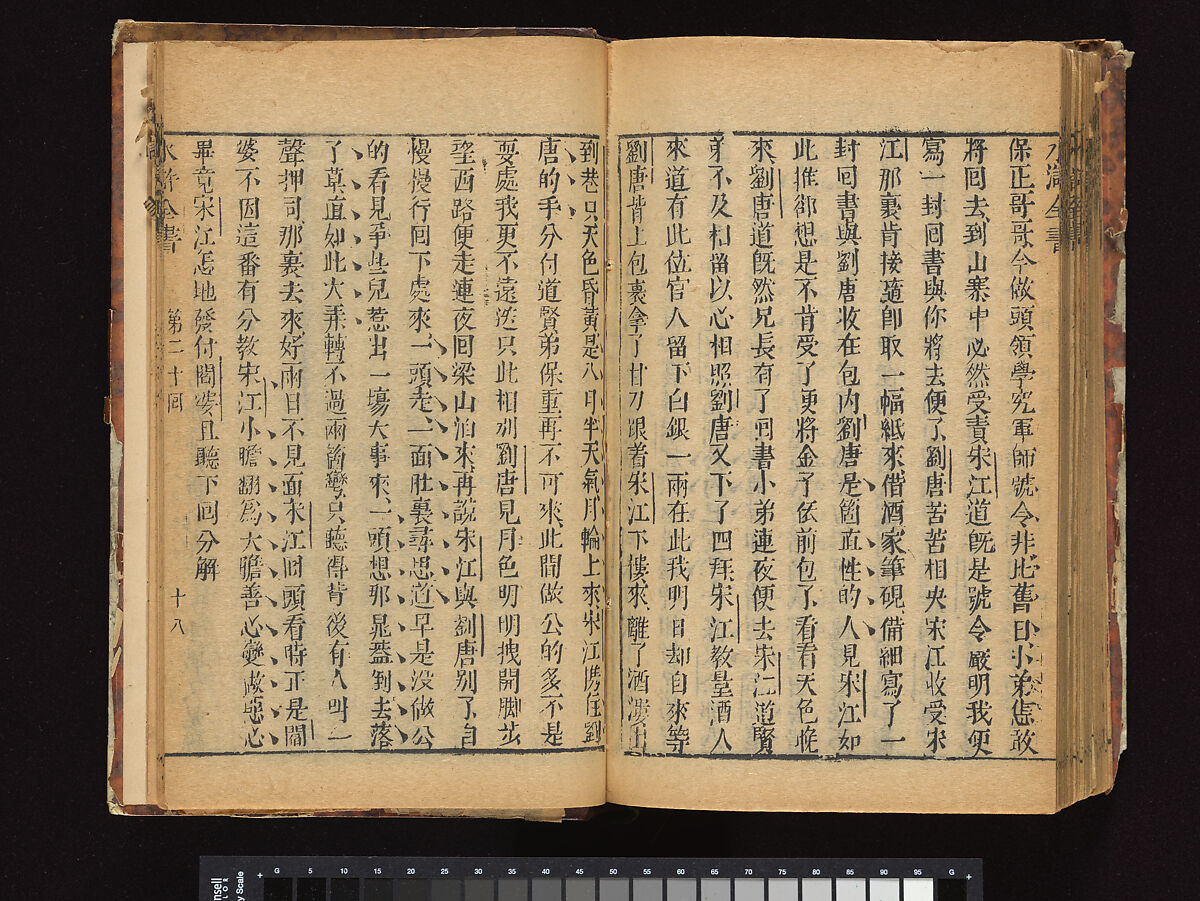 水滸全書
保正哥哥今做頭領學究軍師號令非比舊日小弟怎敢
將回去到山寨中必然受責宋江道既是號令嚴明我便
寫一封回書與你將去便了劉唐苦苦相央宋江收受宋
江那裏肯接隨即取一幅紙來借酒家筆硯備細寫了一
封回書與劉唐收在包內劉唐是箇直性的人見宋江如
此推却想是不肯受了便將金子依前包了看看天色晚
來劉唐道既然兄長有了回書小弟連夜便去宋江道賢
弟不及相留以心相照劉唐又下了四拜宋江教量酒人
來道有此位官人留下白銀一兩在此我明日却自來筭
劉唐背上包裹拿了朴刀跟着宋江下樓來離了酒樓出
到巷口天色昏黃是八月半天氣月輪上來宋江携住劉
唐的手分付道賢弟保重再不可來此間做公的多不是
耍處我更不遠送只此相別劉唐見月色明朗拽開脚步
望西路便走連夜回梁山泊來再說宋江與劉唐別了自
慢慢行回下處來一頭走一面肚裏尋思道早是没做公
的看見爭些兒惹出一塲大事來一頭想那晁盖倒去落
了草直如此大弄轉不過兩箇彎只聽得背後有人叫一
聲押司那裏去來好兩日不見面宋江回頭看時正是閻
婆不因這番有分教宋江小膽翻爲大膽善心變做惡心
畢竟宋江怎地發付閻婆且聽下回分解
水滸全書
第二十回
十八
G 5 10 20 30 35 40 45 50 55 60 65 70 75 80 85 90 95 G